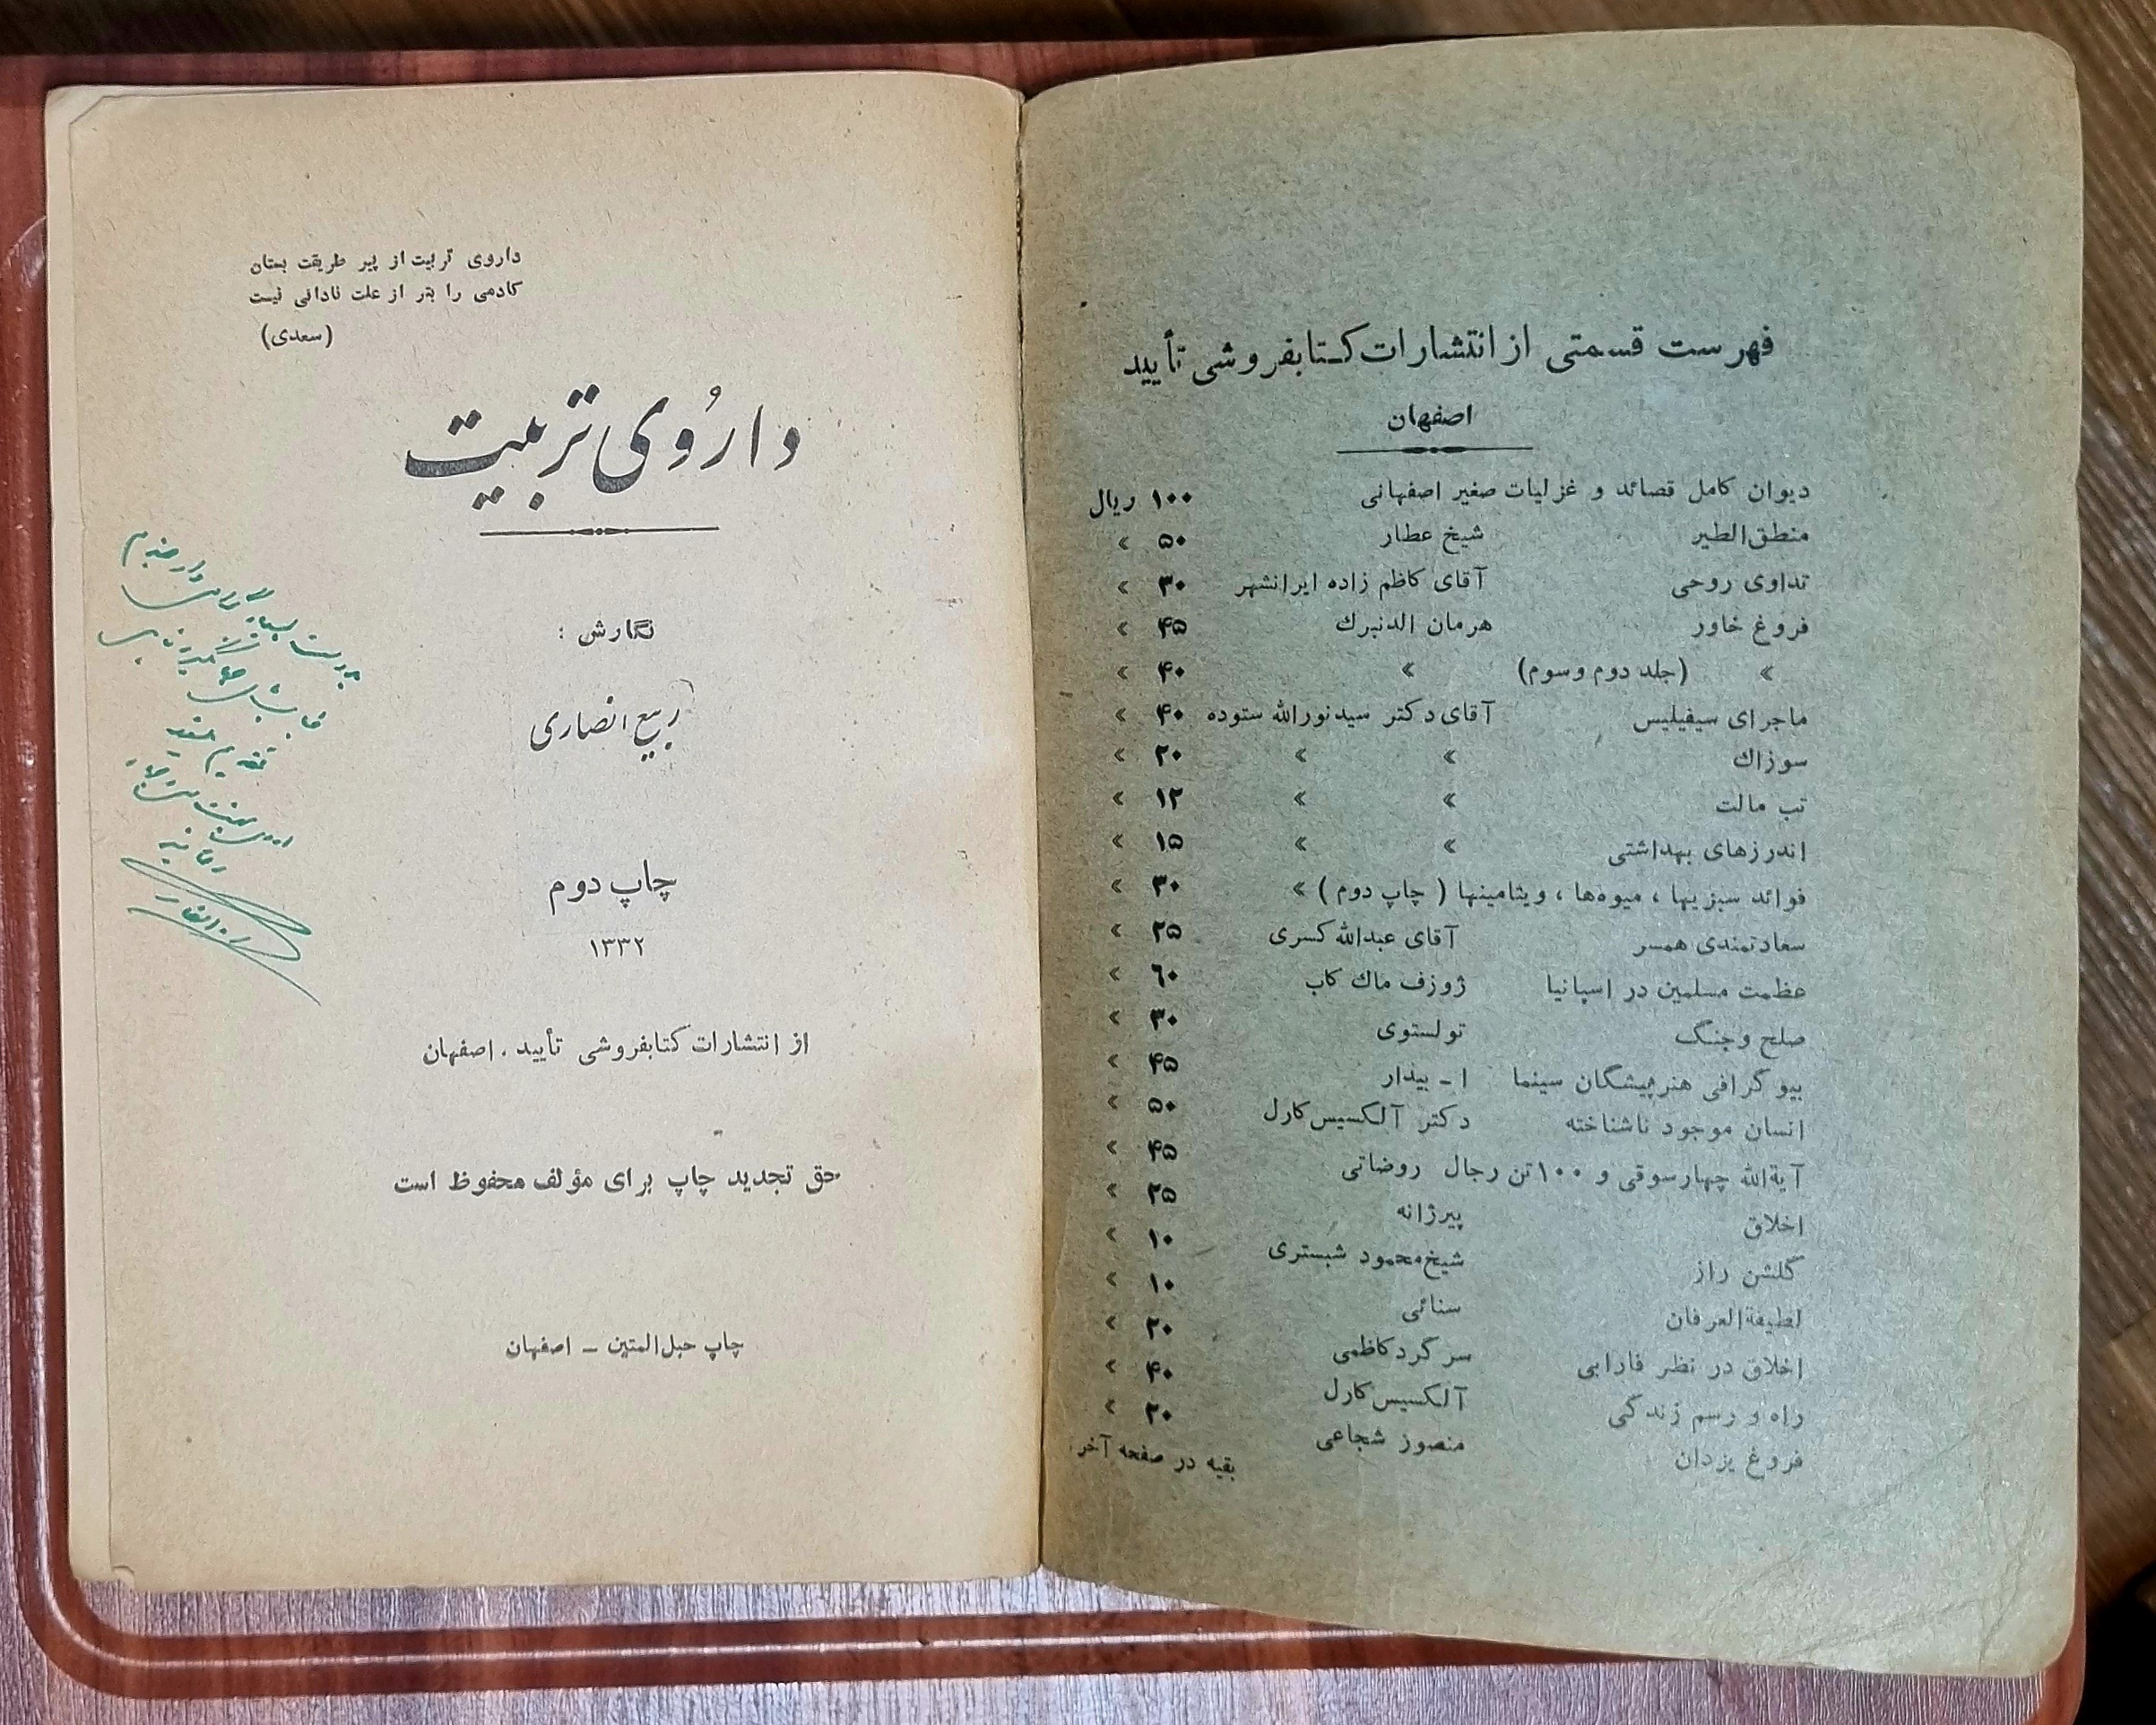 فهرست قسمتی از انتشارات کتابفروشی تأیید
اصفهان
دیوان کامل قصائد و غزلیات صغیر اصفهانی ۱۰۰ ریال
منطق‌الطیر شیخ عطار ۵۰ »
تداوی روحی آقای کاظم زاده ایرانشهر ۳۰ »
فروغ خاور هرمان الدنبرك ۴۵ »
» (جلد دوم وسوم) » ۴۰ »
ماجرای سیفیلیس آقای دکتر سیدنورالله ستوده ۴۰ »
سوزاك » » ۲۰ »
تب مالت » » ۱۲ »
اندرزهای بهداشتی » » ۱۵ »
فوائد سبزیها ، میوه‌ها ، ویتامینها ( چاپ دوم ) » ۳۰ »
سعادتمندی همسر آقای عبدالله کسری ۲۵ »
عظمت مسلمین در اسپانیا ژوزف ماك کاب ۶۰ »
صلح وجنگ تولستوی ۳۰ »
بیوگرافی هنرپیشگان سینما ا - بیدار ۴۵ »
انسان موجود ناشناخته دکتر آلکسیس کارل ۵۰ »
آیةالله چهارسوقی و ۱۰۰ تن رجال روضاتی ۴۵ »
اخلاق پیرژانه ۲۵ »
گلشن راز شیخ‌محمود شبستری ۱۰ »
لطیفةالعرفان سنائی ۱۰ »
اخلاق در نظر فارابی سرگرد کاظمی ۲۰ »
راه و رسم زندگی آلکسیس کارل ۴۰ »
فروغ یزدان منصوز شجاعی ۲۰ »
بقیه در صفحه آخر
داروی تربیت از پیر طریقت بستان
کادمی را بتر از علت نادانی نیست
(سعدی)
دارُوی تربیت
نگارش :
ربیع انصاری
چاپ دوم
۱۳۳۲
از انتشارات کتابفروشی تأیید . اصفهان
حق تجدید چاپ برای مؤلف محفوظ است
چاپ حبل‌المتین - اصفهان